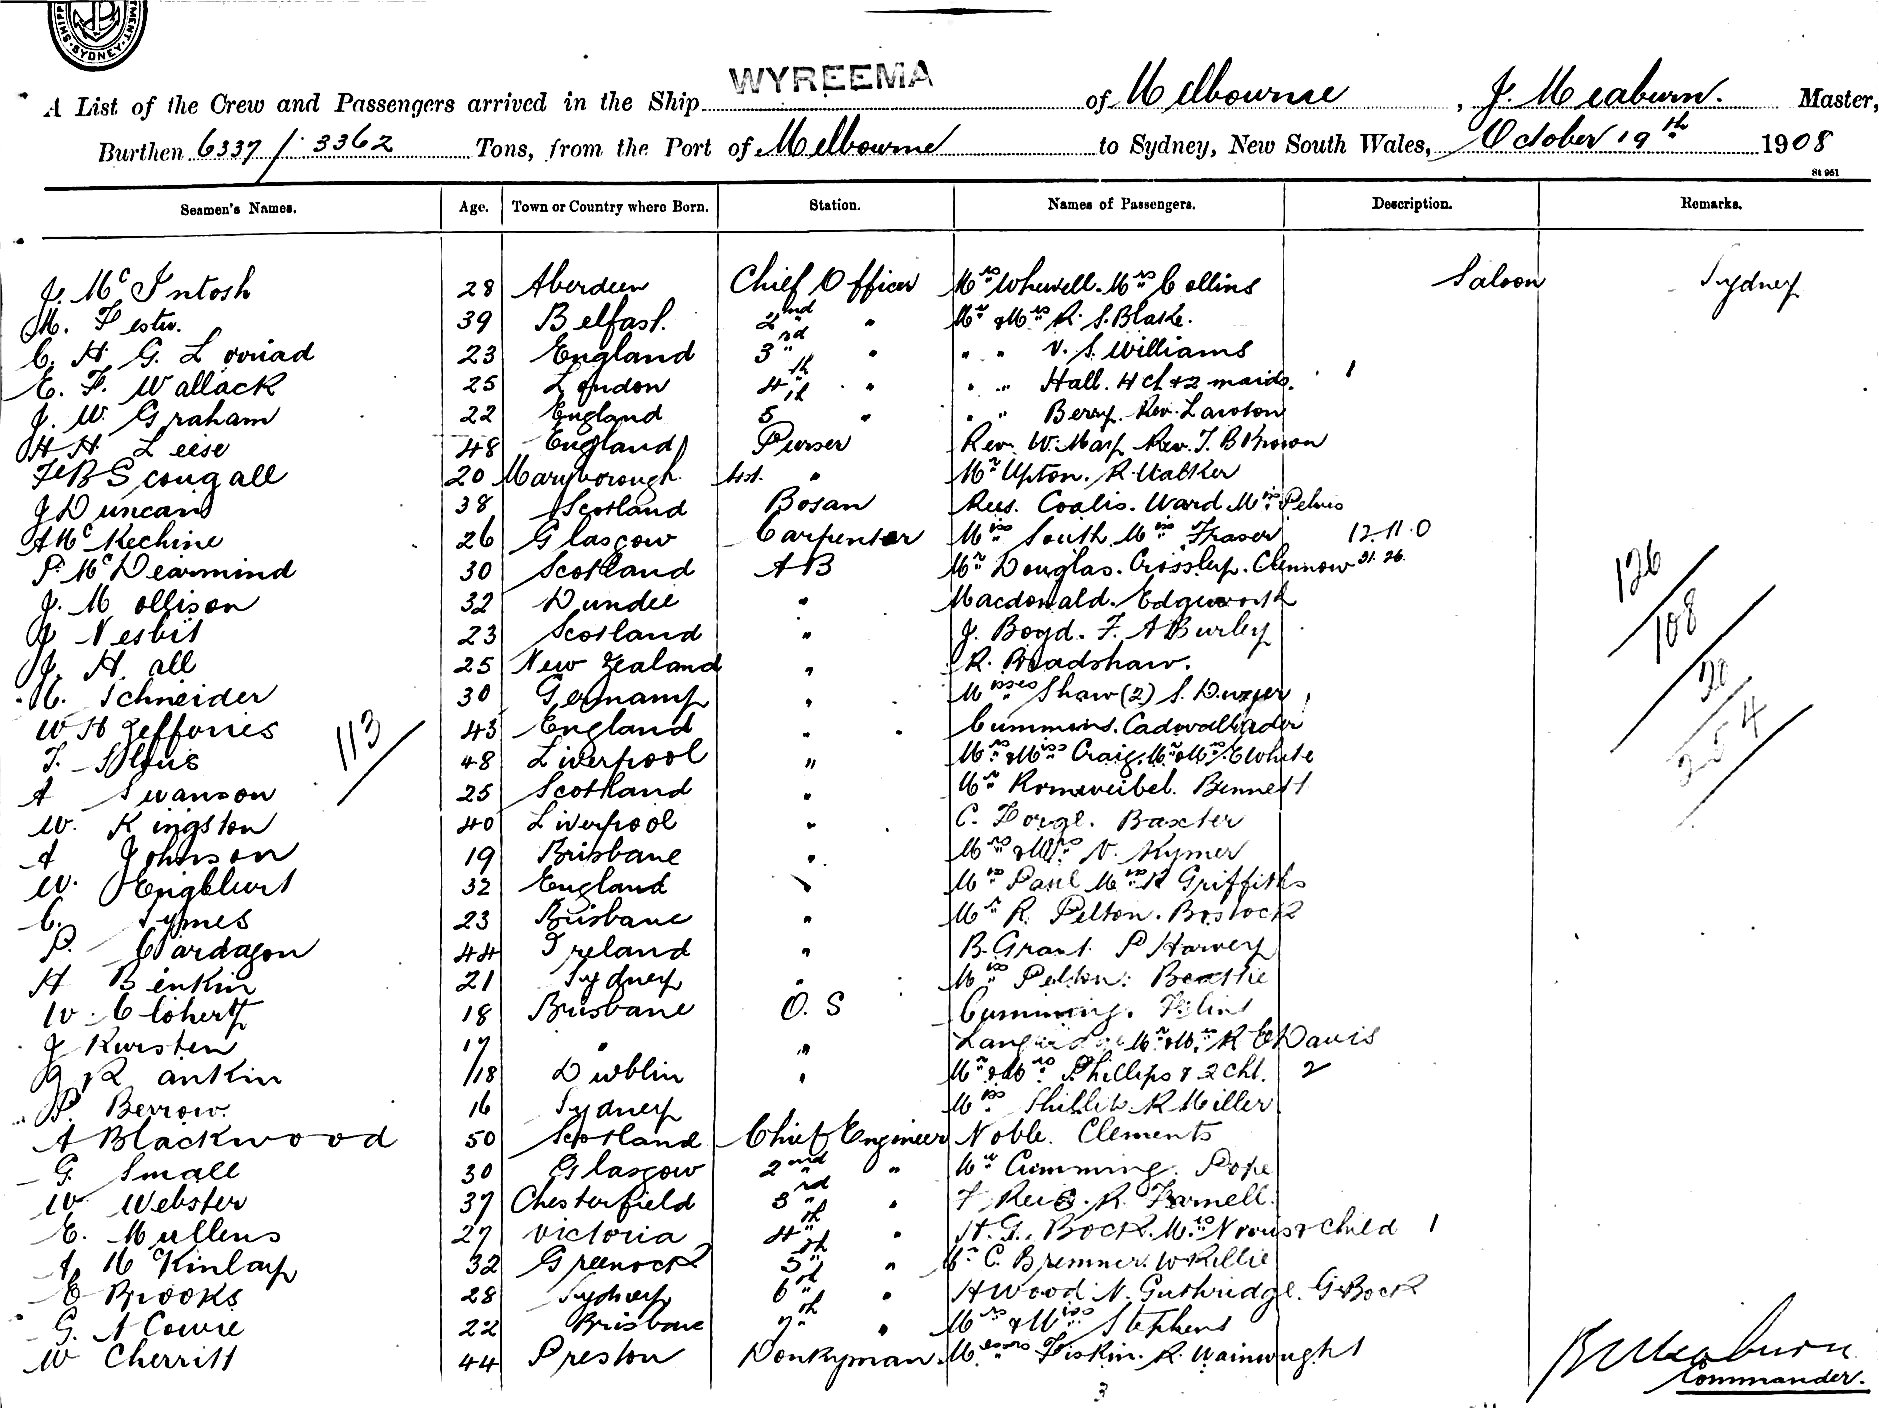 SHIPPING DEPARTMENT. SYDNEY
WYREEMA
A List of the Crew and Passengers arrived in the Ship WYREEMA of Melbourne, J. Meaburn. Master,
Burthen 6337 / 3362 Tons, from the Port of Melbourne to Sydney, New South Wales, October 19th 1908
St 961
Seamen's Names. Age. Town or Country where Born. Station. Names of Passengers. Description. Remarks.
J. Mc Intosh 28 Aberdeen Chief Officer Mrs Whewell. Mrs Collins Saloon Sydney
M. 39 Belfast. 2nd " Mr & Mrs R. S. Blake.
C. H. G. 23 England 3rd " " " V. S. Williams
E. F. Wallack 25 London 4th " " " Hall. 4 ch & 2 maids. 1
J. W. Graham 22 England 5th " " " Berry. Rev. Lawton
H H. Leese 48 England Purser Rev. W. Rev. T. B Brown
F B Scougall 20 Maryborough Asst. " Mr Upton. R. Walker
J Duncan 38 Scotland Bosan Ward Miss
A Mc Kechine 26 Glasgow Carpenter Miss South. Miss Fraser 12.11.0
P. Mc Dearmind 30 Scotland AB Mr Douglas. Crossley. Clennow 31.26
J. Mollison 32 Dundee " Macdonald. Edgeworth
J Nesbit 23 Scotland " J. Boyd. F. A Burley
J. Hall 25 New Zealand " R. Bradshaw.
H. Schneider 30 Germany " Misses Shaw (2) S. Dwyer
W H Jeffories 43 England " Cummins. Cadwallader
T. 48 Liverpool " Mrs & Miss Craig. Mr & Mrs E White
A Swanson 25 Scotland " Mr Bennett
W. Kingston 40 Liverpool " C. Baxter
A Johnson 19 Brisbane " Mrs & V. Kymer
W. 32 England " Miss Paul Miss R Griffiths
C. Symes 23 Brisbane " Mr R. Pelton. Bostock
P. Cardagon 44 Ireland " B. Grant. P Harvey
H Benkin 21 Sydney " Miss Pelton. Beattie
W. Cloherty 18 Brisbane O. S Cumming.
J Kursten 17 " " Mr & Mrs R E Davis
G Rankin 18 Dublin " Mr & Mrs Phillips & 2 chl. 2
P. Berrow. 16 Sydney " Miss R Miller
A Blackwood 50 Scotland Chief Engineer Noble. Clements
G. Small 30 Glasgow 2nd " Mr Cumming. Pope
W. Webster 37 Chesterfield 3rd " F Reid. R. Farnell.
E. Mullens 27 Victoria 4th " H. G. Bock. Mrs & Child 1
A. Mc Kinlay 32 Greenock 5th " Mr C. Bremner. W Rillie
E Brooks 28 Sydney 6th " H Wood. N. Guthridge. G Bock
G. A Cowie 22 Brisbane 7th " Mrs & Miss Stephens
W Cherritt 44 Preston Donkyman. Messrs Fiskin. R. Wainwright
3
113
126
108
20
254
Meaburn
Commander.